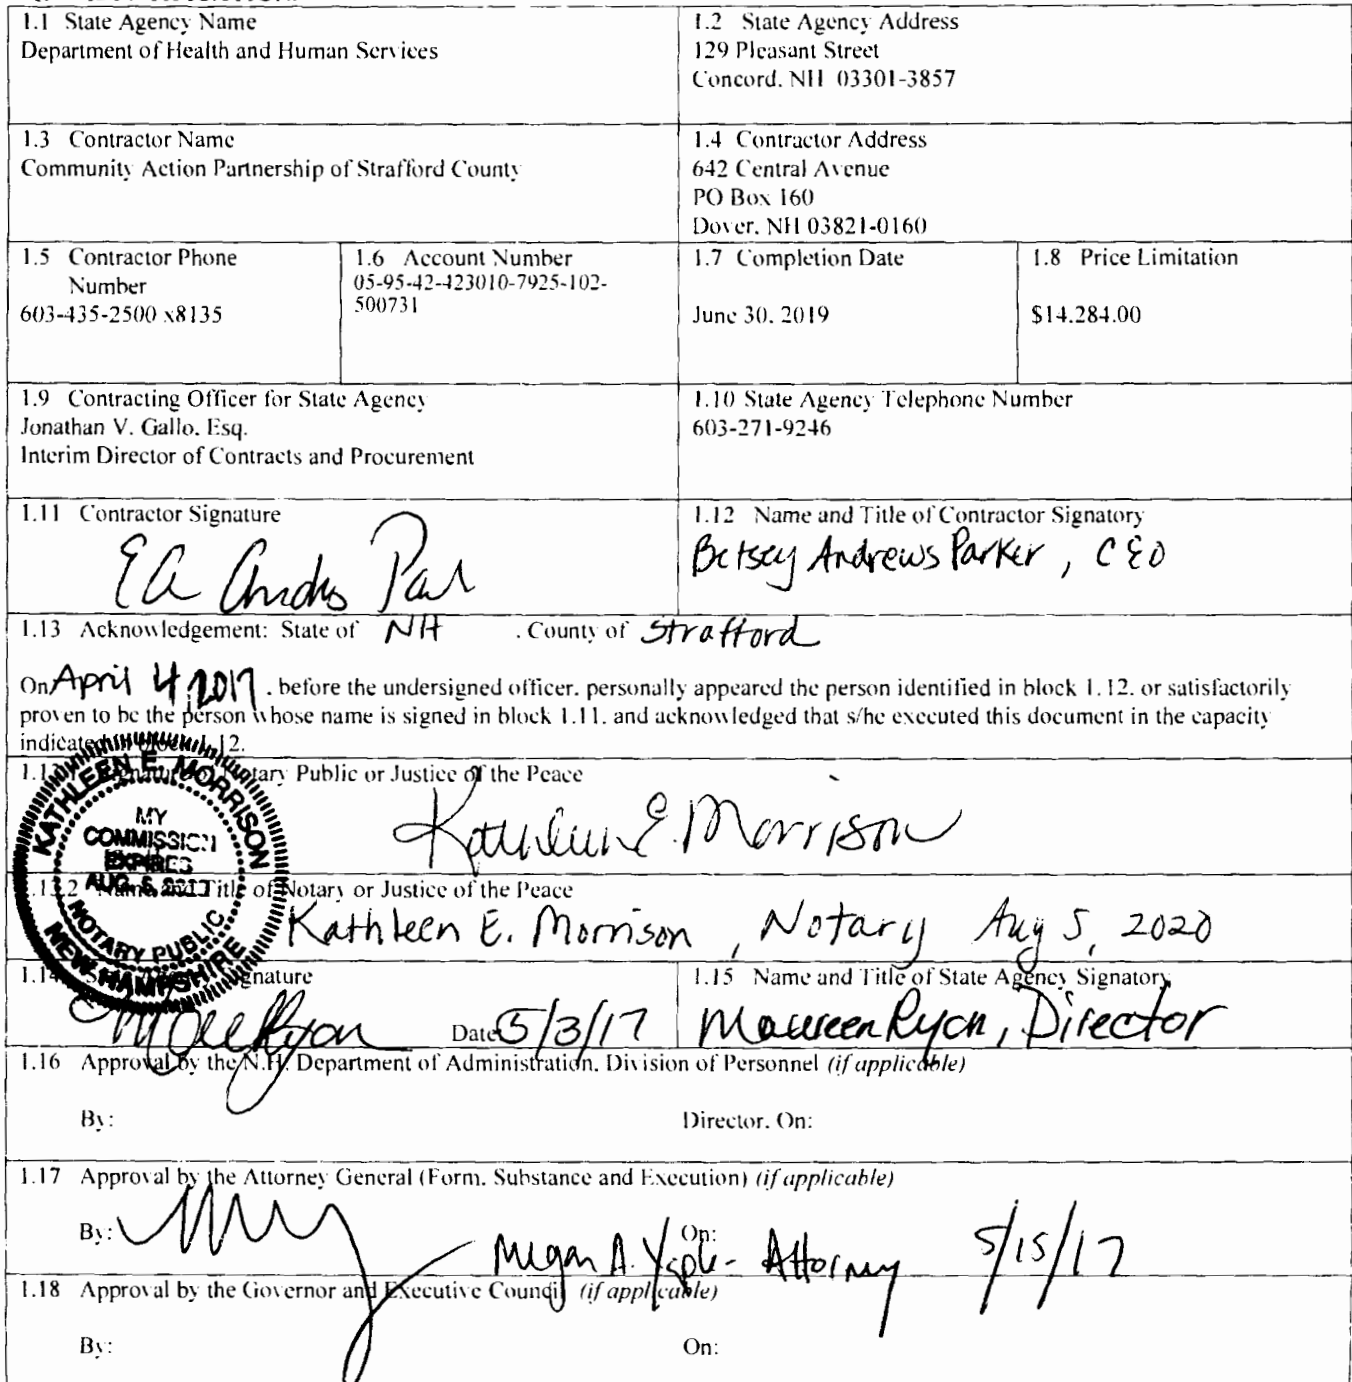 1.1 State Agency Name
Department of Health and Human Services
1.2 State Agency Address
129 Pleasant Street
Concord, NH 03301-3857
1.3 Contractor Name
Community Action Partnership of Strafford County
1.4 Contractor Address
642 Central Avenue
PO Box 160
Dover, NH 03821-0160
1.5 Contractor Phone
Number
603-435-2500 x8135
1.6 Account Number
05-95-42-423010-7925-102-
500731
1.7 Completion Date
June 30, 2019
1.8 Price Limitation
$14,284.00
1.9 Contracting Officer for State Agency
Jonathan V. Gallo, Esq.
Interim Director of Contracts and Procurement
1.10 State Agency Telephone Number
603-271-9246
1.11 Contractor Signature
1.12 Name and Title of Contractor Signatory
Betsey Andrews Parker, CEO
1.13 Acknowledgement: State of NH , County of Strafford
On April 4, 2017 , before the undersigned officer, personally appeared the person identified in block 1.12, or satisfactorily
proven to be the person whose name is signed in block 1.11, and acknowledged that s/he executed this document in the capacity
indicated in block 1.12.
Signature of Notary Public or Justice of the Peace
Kathleen E. Morrison
KATHLEEN E. MORRISON
MY
COMMISSION
EXPIRES
AUG. 5,
NOTARY PUBLIC
NEW HAMPSHIRE
1.13.2 Name and Title of Notary or Justice of the Peace
Kathleen E. Morrison, Notary Aug 5, 2020
1.14 Signature
Date: 5/3/17
1.15 Name and Title of State Agency Signatory
Maureen Ryan, Director
1.16 Approval by the N.H. Department of Administration, Division of Personnel (if applicable)
By:
Director, On:
1.17 Approval by the Attorney General (Form, Substance and Execution) (if applicable)
By:
On:
Megan A. Yaple - Attorney 5/15/17
1.18 Approval by the Governor and Executive Council (if applicable)
By:
On: